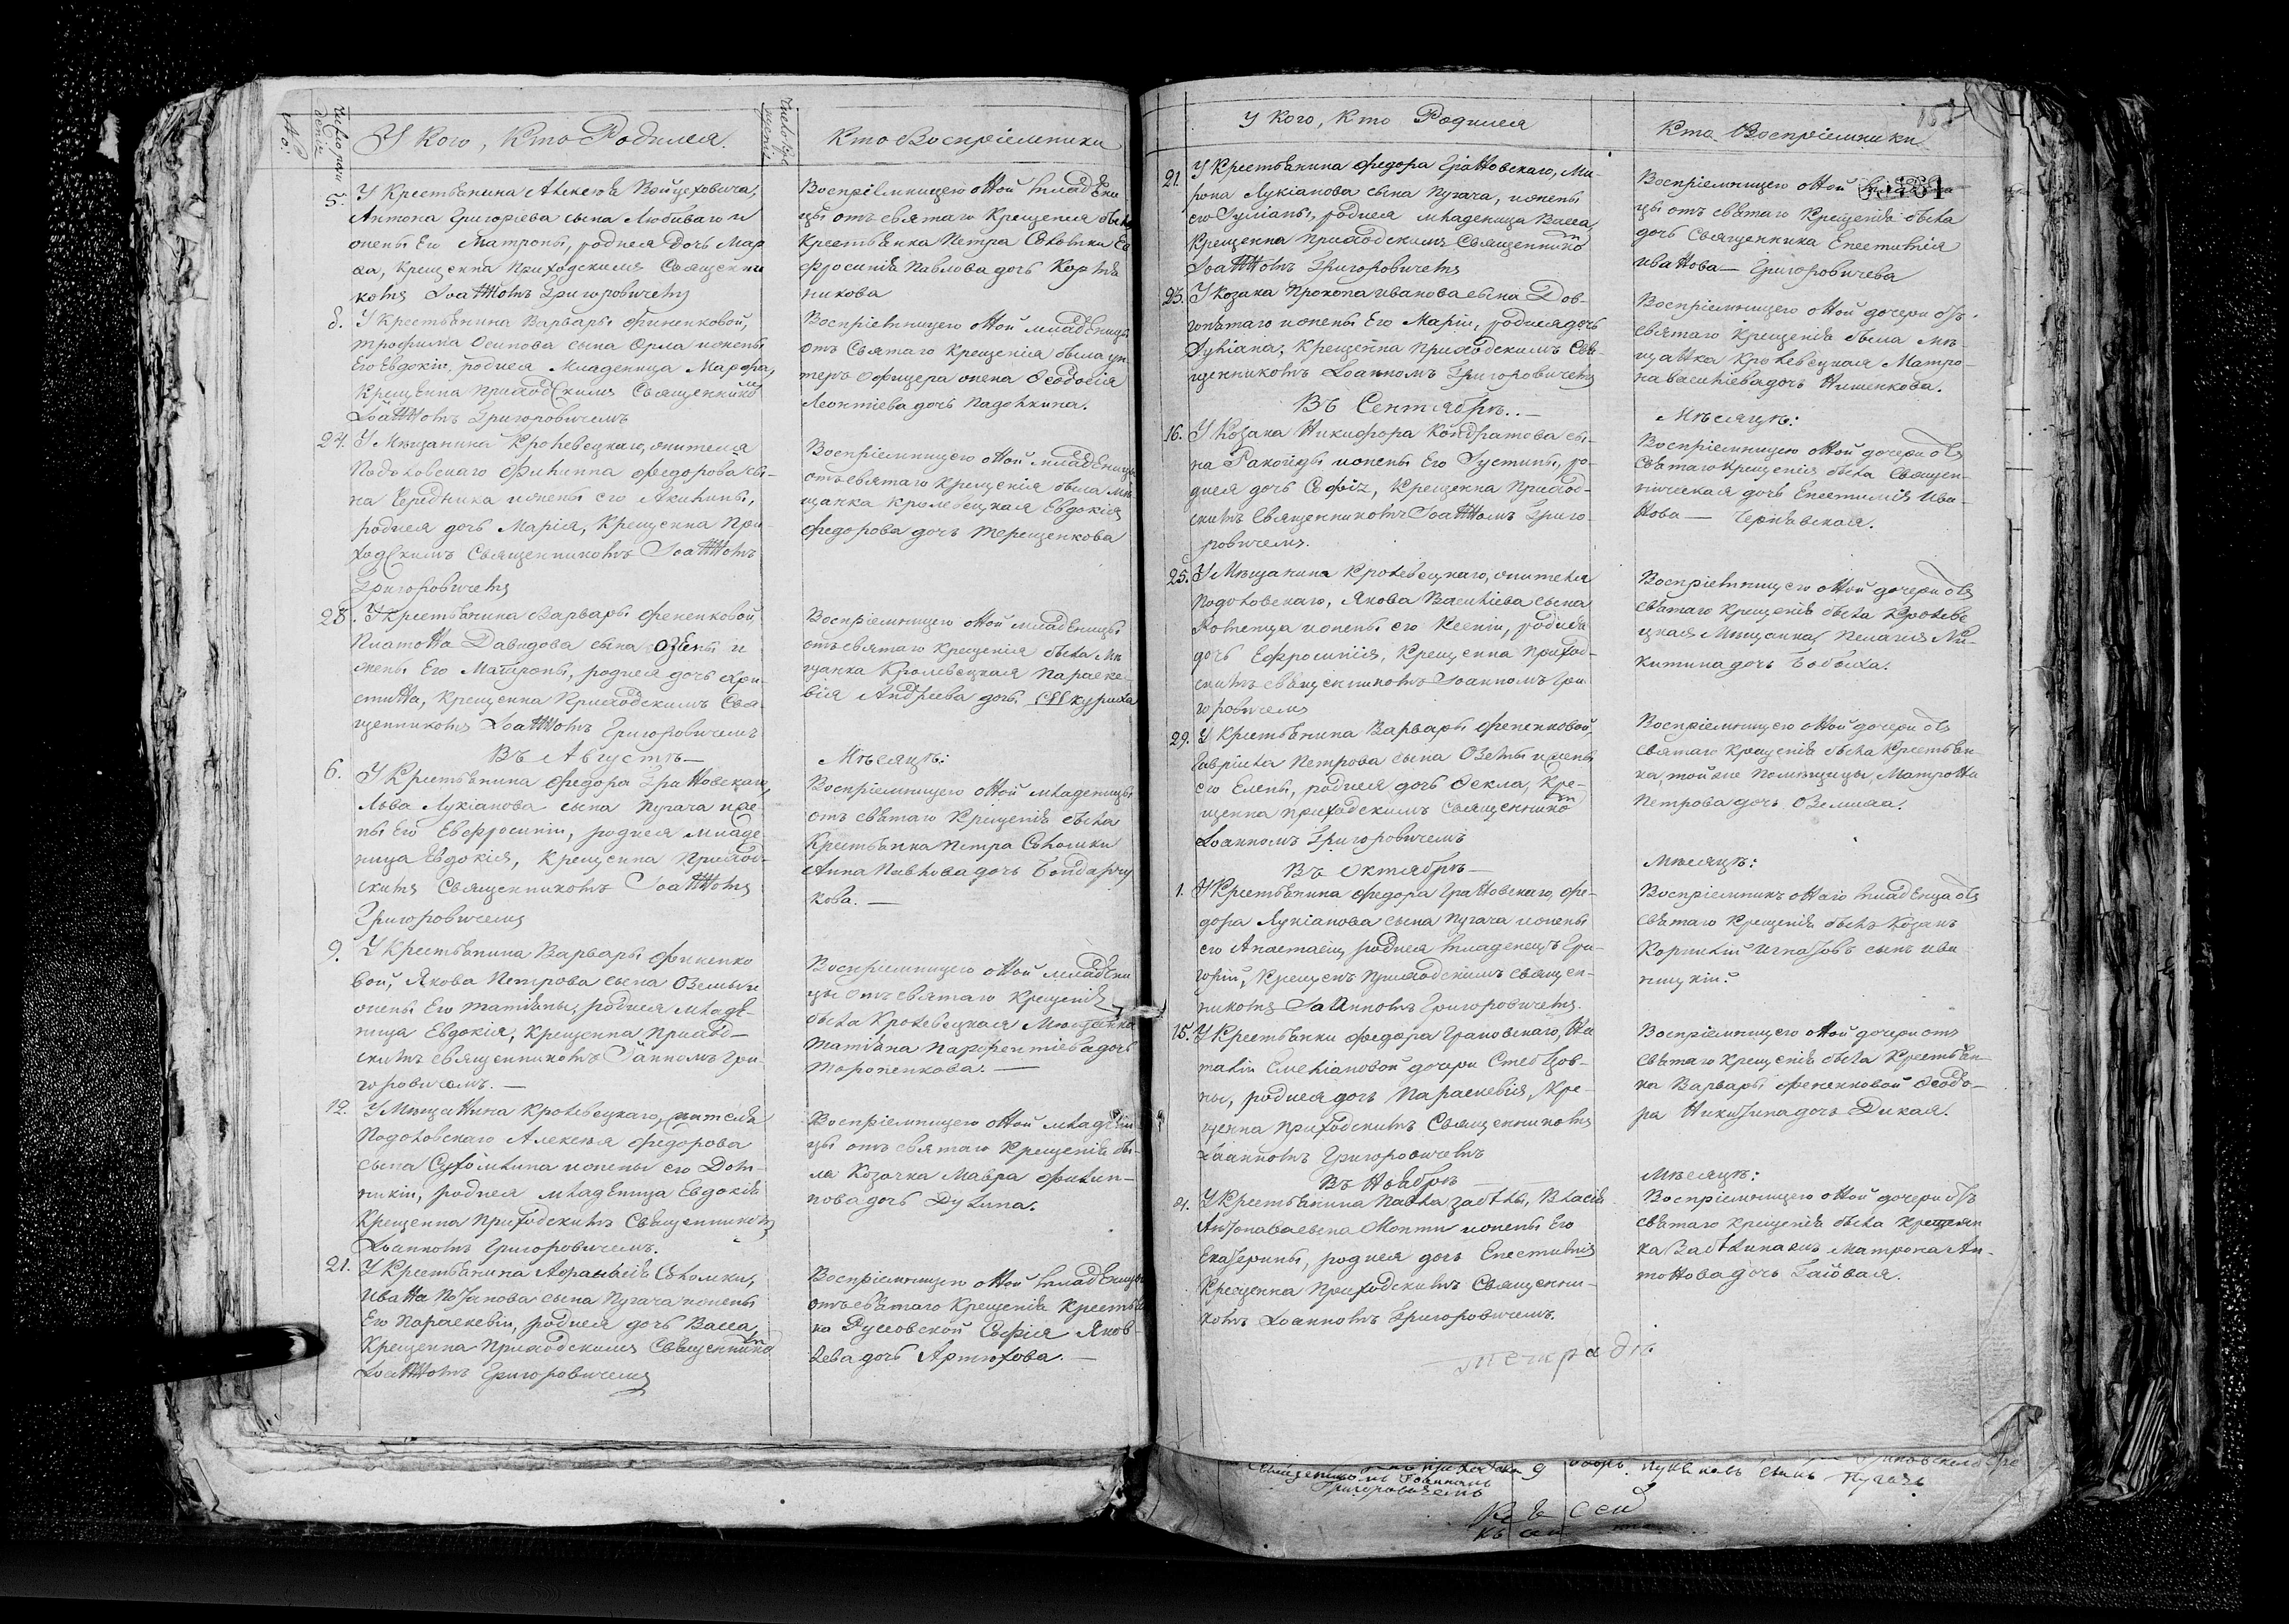 У кого, кто Родился.
Кто Воспріемники
5. У Крестьянина Алексея Войцеховича,
Антона Григоріева сына Любиваго и
жены Его Матроны, родися Дочь Мар
ха, Крещенна Приходскимъ Священни
комъ Іоанномъ Григоровичемъ
Воспріемницею оной младени
цы отъ святаго Крещенія была
Крестьянка Петра Сѣколки Ев
фросинія Павлова дочь Корнѣ
никова
8. У крестьянина Варвары Финенковой,
трофима Осипова сына Орла и жены
Его Евдокіи, родися Младеница Марфа,
Крещенна Приходскимъ Священнико
Іоанномъ Григоровичемъ
Воспріемницею оной младеницы
отъ Святаго Крещенія была ун
теръ Офицера жена Феодосія
Леонтіева дочь Падолкина.
24. У Мѣщанина Кролевецкаго, жителя
Подоловскаго Филиппа Федорова сы-
на Середника и жены его Акилины,
родися дочь Марія, Крещенна При
ходскимъ Священникомъ Іоанномъ
Григоровичемъ
Воспріемницею оной младеницы
отъ святаго крещенія была мѣ
щанка кролевецкая Евдокія
Федорова дочь Терещенкова
28. У Крестьянина Варвары Фененковой,
Платона Давидова сына Озены и
жены Его Матроны, родися дочь Хри-
стина, Крещенна Приходскимъ Свя-
щенникомъ Іоанномъ Григоровичемъ
Воспріемницею оной младеницы
отъ святаго крещенія была Мѣ
щанка Кролевецкая Параске
вія Андреева дочь Шкуриха
Въ Августѣ
Мѣсяцѣ:
6. У Крестьянина Федора Грановскаго,
Льва Лукіанова сына Пугача и же-
ны Его Евфросиніи, родися младе
ница Евдокія, Крещенна Приход-
скимъ Священникомъ Іоанномъ
Григоровичемъ
Воспріемницею оной младеницы
отъ святаго Крещенія была
Крестьянка Петра Сѣколки
Анна Павлова дочь Бондарчу
кова.
9. У Крестьянина Варвары Финенко
вой, Якова Петрова сына Оземы и
жены Его Татіаны, родися младе
ница Евдокія, Крещенна Приход-
скимъ священникомъ Іоанномъ Гри
горовичемъ.
Воспріемницею оной младени
цы отъ святаго Крещенія
была Кролевецкая Мѣщанка
Татіана Парфентіева дочь
Торопенкова.
12. У Мѣщанина Кролевецкаго, жителя
Подоловскаго Алексея Федорова
сына Сухомлина и жены его Дом-
никіи, родися младеница Евдокія
Крещенна Приходскимъ Священникомъ
Іоанномъ Григоровичемъ.
Воспріемницею оной младени
цы отъ святаго Крещенія бы-
ла Козачка Мавра Филип-
пова дочь Дулина.
21. У Крестьянина Афанасія Сѣколки,
Ивана Потапова сына Пугача и жены
Его Параскевіи, родися дочь Васса,
Крещенна Приходскимъ Священнико
Іоанномъ Григоровичемъ
Воспріемницею оной младеницы
отъ святаго Крещенія Крестьян
ка Русовской Софія Яков-
лева дочь Артюхова.
У кого, кто Родился
Кто Воспріемники
21. У Крестьянина Федора Грановскаго, Ми-
рона Лукіанова сына Пугача, и жены
его Іуліаны, родися младеница Васса,
Крещенна Приходскимъ Священнико
Іоанномъ Григоровичемъ
Воспріемницею оной
цы отъ святаго Крещенія была
дочь Священника Епестимія
Иванова Григоровичева
23. У Козака Прокопа Иванова сына Дов-
гопятаго и жены Его Маріи, родися дочь
Іуліана, Крещенна Приходскимъ Свя-
щенникомъ Іоанномъ Григоровичемъ
Воспріемницею оной дочери отъ
святаго Крещенія была мѣ-
щанка Кролевецкая Матро-
на Василіева дочь Нишенкова.
Въ Сентябрѣ
Мѣсяцѣ:
16. У Козака Никифора Кондратова сы-
на Ракойды и жены Его Іустины, ро-
дися дочь Софія, Крещенна Приход-
скимъ Священникомъ Іоанномъ Григо-
ровичемъ.
Воспріемницею оной дочери отъ
Святаго Крещенія была Священ-
ническая дочь Епестимія Ива-
нова Чернявская.
25. У Мѣщанина Кролевецкаго, жителя
Подоловскаго, Якова Василіева сына
и жены его Ксеніи, родися
дочь Ефросинія, Крещенна Приход-
скимъ священникомъ Іоанномъ Гри
горовичемъ
Воспріемницею оной дочери отъ
святаго Крещенія была Кролеве
цкая Мѣщанка Пелагія Ни-
китина дочь Бобыха.
29. У Крестьянина Варвары Фененковой,
Гавріила Петрова сына Оземы и жены
его Елены, родися дочь Фекла, Кре-
щенна приходскимъ священнико
Іоанномъ Григоровичемъ
Воспріемницею оной дочери отъ
святаго Крещенія была Крестьян-
ка, той же помѣщицы, Матрона
Петрова дочь Оземиха.
Въ Октябрѣ
Мѣсяцѣ:
1. У Крестьянина Федора Грановскаго, Фе-
дора Лукіанова сына Пугача и жены
его Анастасіи, родися младенецъ Гри-
горій, Крещенъ Приходскимъ священ-
никомъ Іоанномъ Григоровичемъ.
Воспріемникъ онаго младенца отъ
святаго Крещенія былъ Козакъ
Корнилій Игнатовъ сынъ Ива
ницкій.
15. У Крестьянки Федора Грановскаго, На
таліи Емеліановой дочери Стеблов-
ны, родися дочь Параскевія, Кре-
щенна Приходскимъ Священникомъ
Іоанномъ Григоровичемъ
Воспріемницею оной дочери отъ
святаго Крещенія была Крестьян-
ка Варвары Фененковой Феодо-
ра Никитина дочь Дикая.
Въ Ноябрѣ
Мѣсяцѣ:
У Крестьянина Павла Забѣлы, Власія
Антонова сына и жены Его
Екатерины, родися дочь Епестимія
Крещенна Приходскимъ Священни-
комъ Іоанномъ Григоровичемъ.
Воспріемницею оной дочери отъ
святаго Крещенія была Крестьян
ка Матрона Ан-
тонова дочь Гаёвая.
Священикомъ Іоанномъ
Григоровичемъ
сынъ Пугачъ